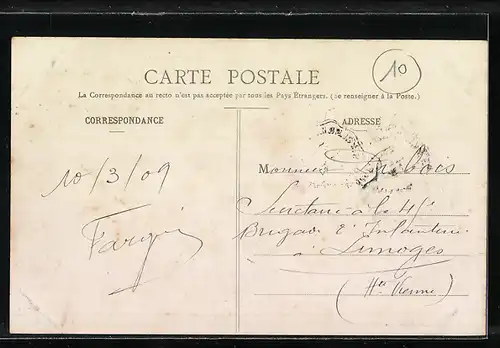 10
CARTE POSTALE
La Correspondance au recto n'est pas acceptée par tous les Pays Etrangers. (Se renseigner à la Poste.)
CORRESPONDANCE
ADRESSE
10/3/09
Monsieur Dubois
Secrétaire à la 41e
Brigade d'Infanterie
à Limoges
(Hte Vienne)